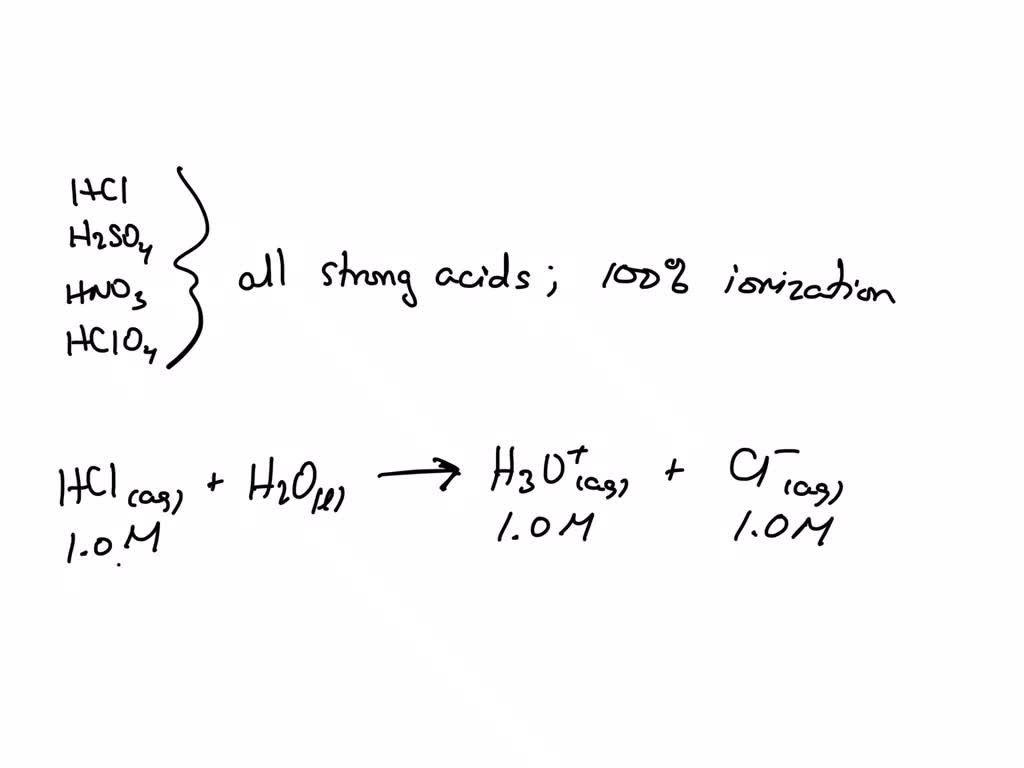 HCl
H₂SO₄
HNO₃
HClO₄
all strong acids; 100% ionization
HCl(aq) + H₂O(l) → H₃O⁺(aq) + Cl⁻(aq)
1.0 M 1.0 M 1.0 M